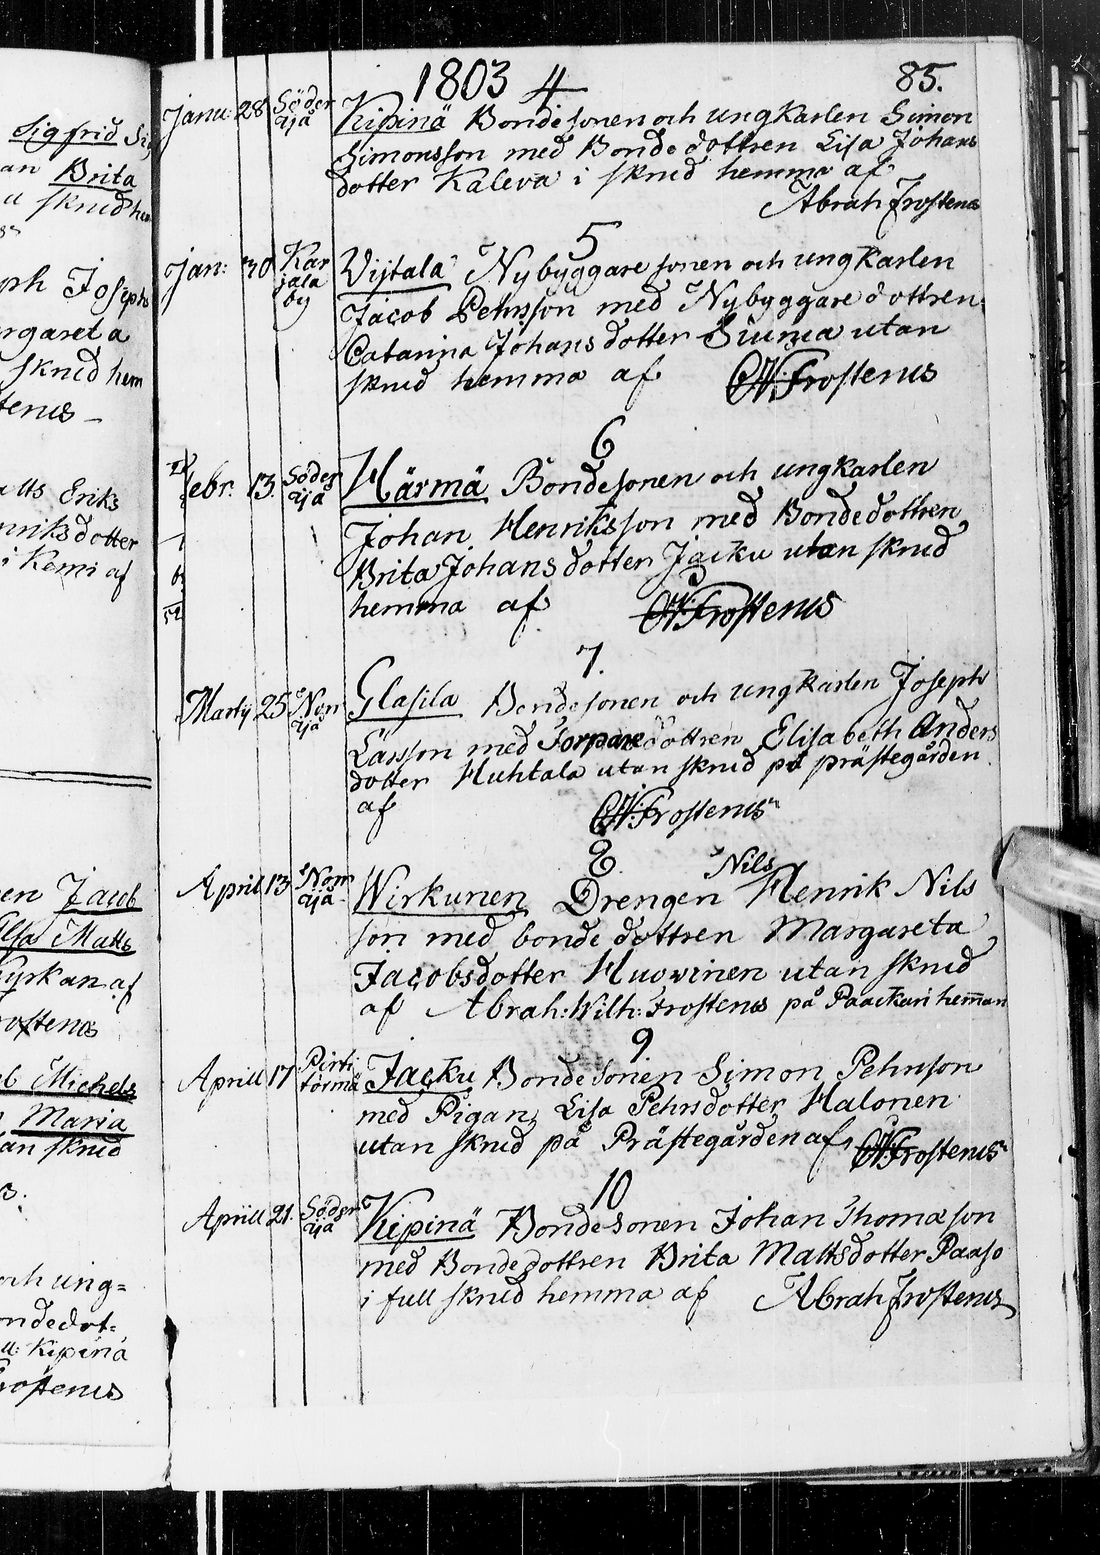 Sigfrid Sig
an Brita
a skrud hem
ph Josephs
rgareta
skrud hem
tenus
atts Eriks
nriksdotter
i Kemi af
en Jacob
Elsa Matts
kyrkan af
rostenus
ob Michels
Maria
an skrud
och ung=
ondedot=
Kipinä
rostenus
1803 4 85.
Janu: 28 Söder äjä Kipinä Bondesonen och ungkarlen Simon
Simonsson med Bondedottren Lisa Johans
dotter Kaleva i skrud hemma af
Abrah Frostenus
5
Jan: 30 Kar jala by Vijtala Nybyggare sonen och ungkarlen
Jacob Pehrsson med Nybyggare dottren
Catarina Johansdotter Siurua utan
skrud hemma af AWFrostenus
6
Febr. 13. Söder äjä Härmä Bondesonen och ungkarlen
Johan Henriksson med Bondedottren
Brita Johansdotter Jacku utan skrud
hemma af AWFrostenus
7.
Martij 25 Norr äjä Glasila Bondesonen och ungkarlen Josephs
Larsson med Torparedottren Elisabeth Anders
dotter Huhtala utan skrud på prästegården
af AWFrostenus
8.
Nils
Aprill 13 Norr äjä Wirkunen Drengen Henrik Nils
son med bondedottren Margareta
Jacobsdotter Huowinen utan skrud
af Abrah: Wilh: Frostenus på Paackari hemman
9.
Aprill 17 Pirti törmä Jacku Bondesonen Simon Pehrsson
med Pigan Lisa Pehrsdotter Halonen
utan skrud på Prästegården af AWFrostenus
10
Aprill 21. Söder äjä Kipinä Bondesonen Johan Thomasson
med Bondedottren Brita Mattsdotter Paaso
i full skrud hemma af Abrah Frostenus